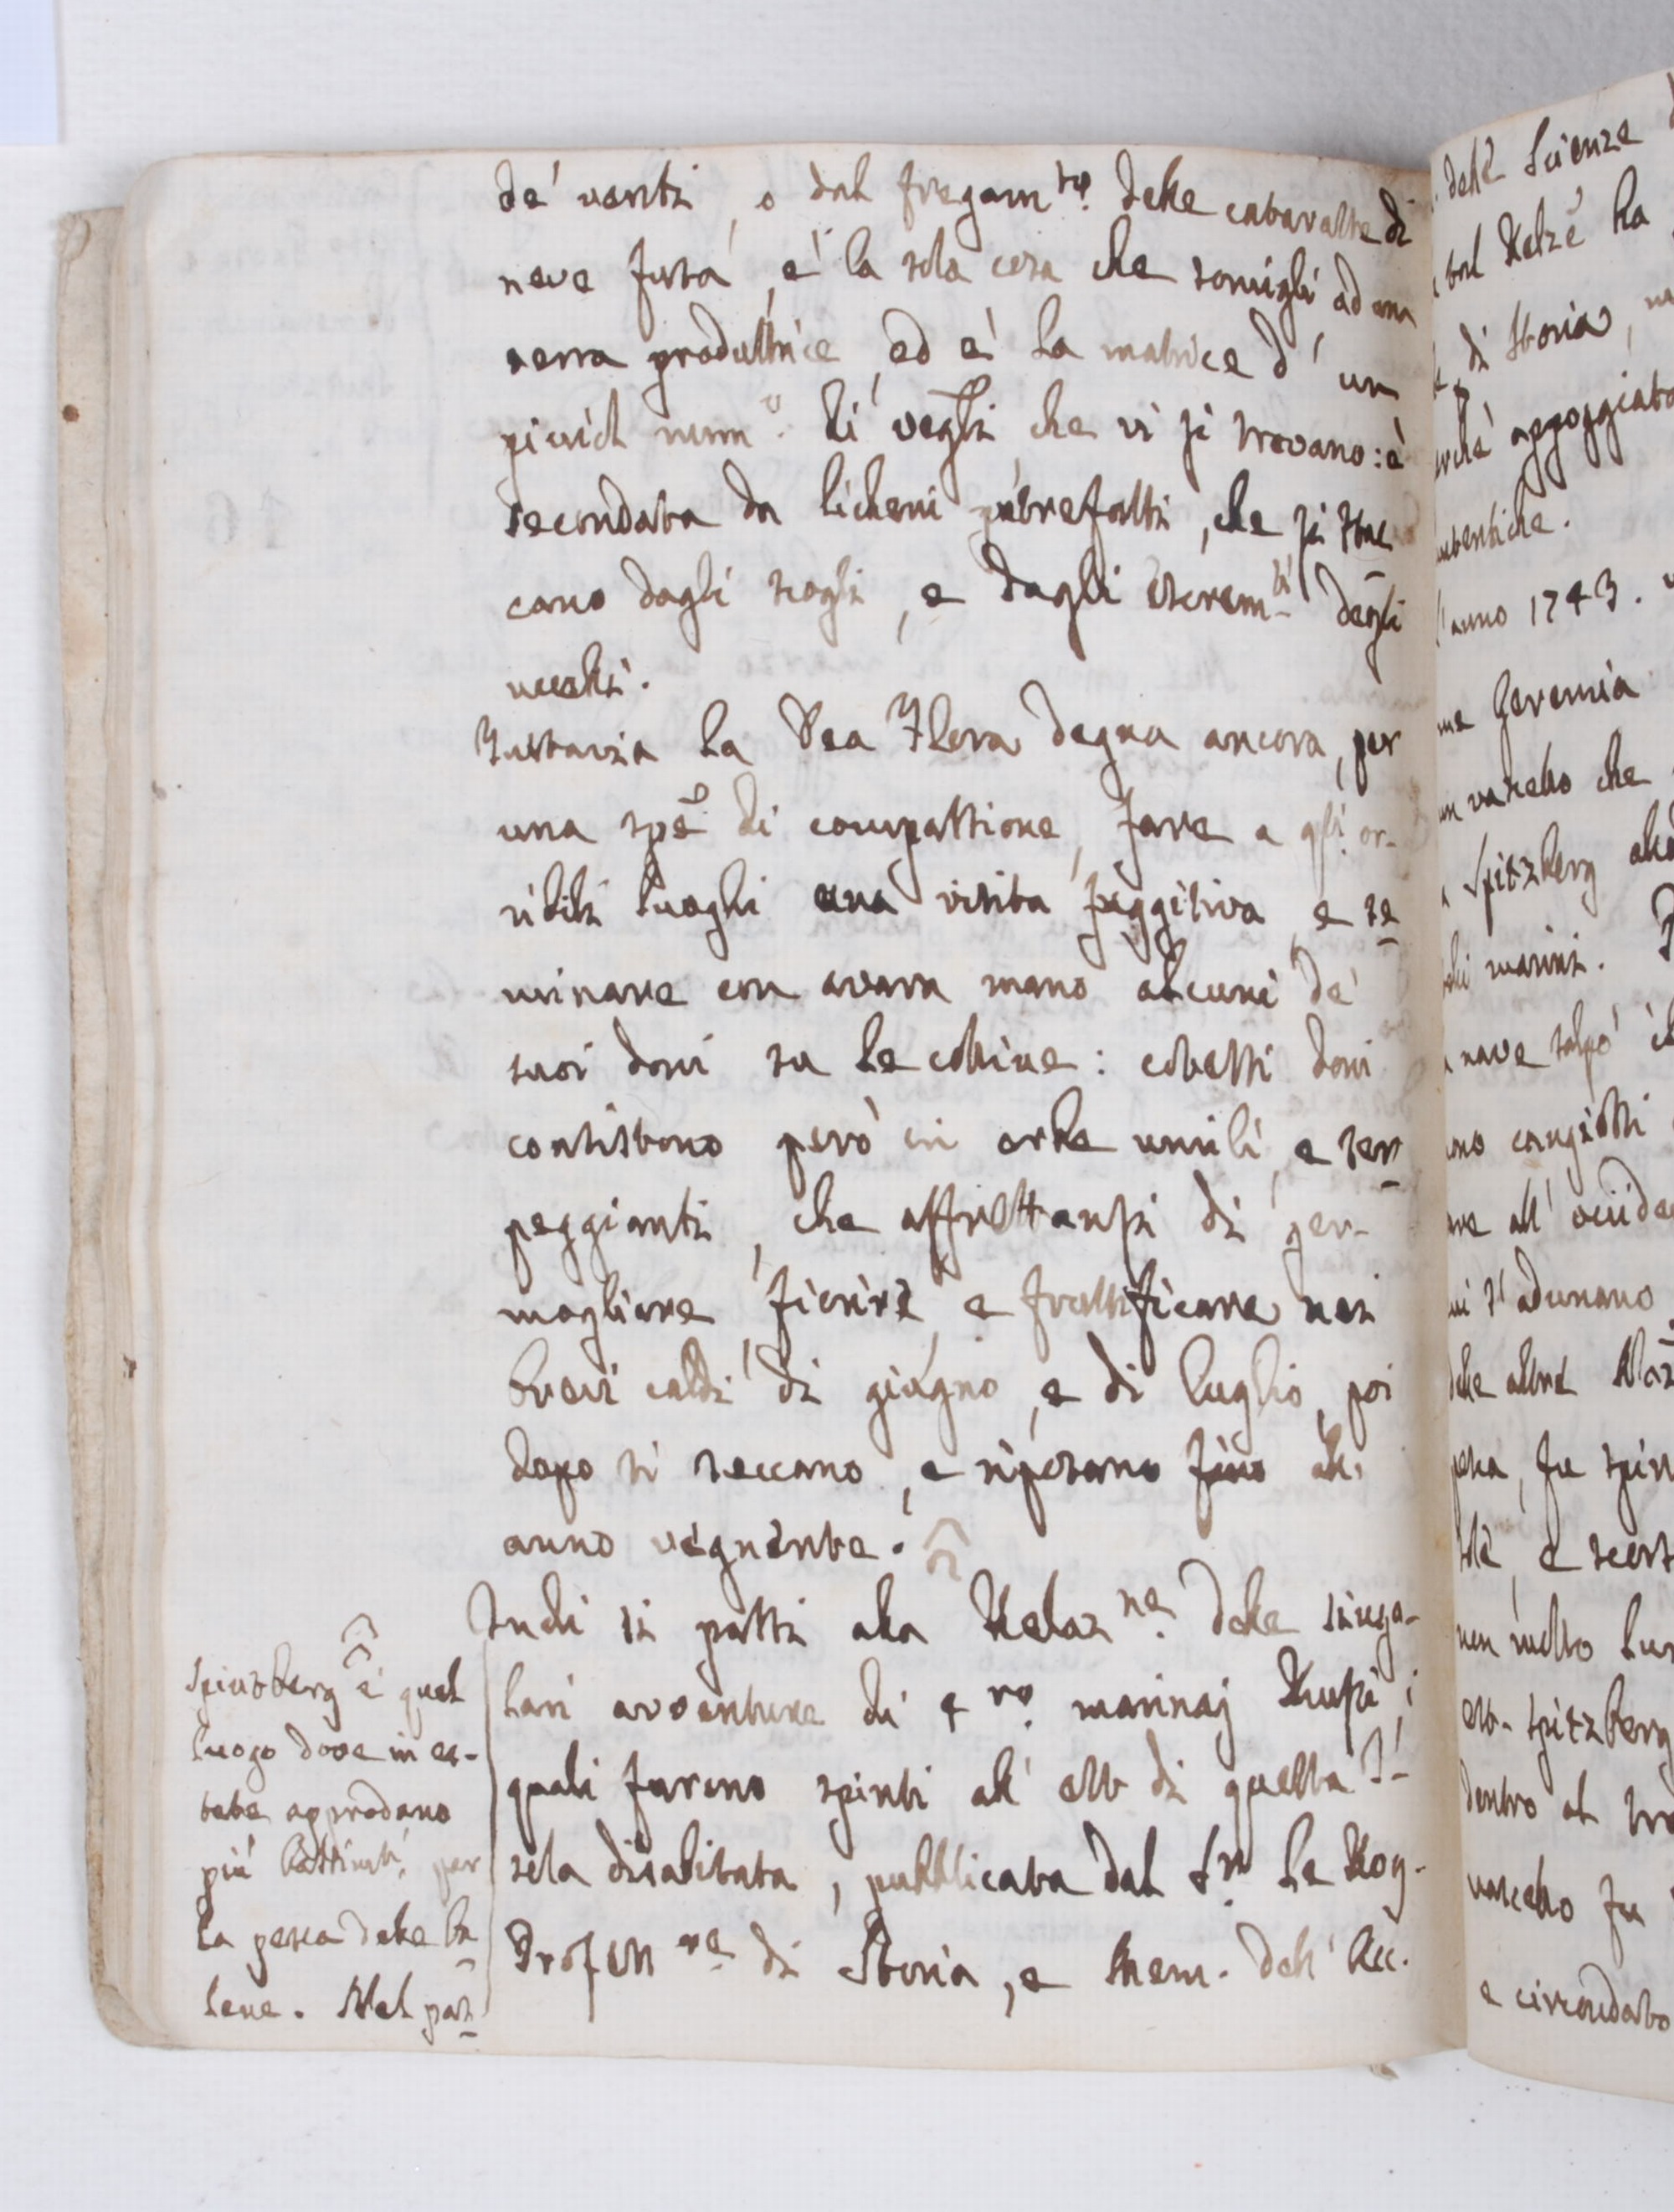 de' venti, o dal fregam.to delle cataratte di
neve fusa, è la sola cosa che somigli ad una
terra produttrice, ed è la matrice d' un
picciol num.o di vegli che vi si trovano: è
secondata da licheni putrefatti, che si stac
cano dagli scogli, e dagli escrem.ti degli
uccelli.
Tuttavia la Dea Flora degna ancora, per
una spē di compassione, fare a qsti or-
ribili luoghi una visita fuggitiva, e se
minare con avara mano alcuni de'
suoi doni su le colline: cotesti doni
consistono però in erbe umili, e ser
peggianti, che affrettansi di ger-
mogliare, fiorire, e fruttificare nei
brevi caldi di giugno, e di luglio, poi
dopo si seccano, e riposano fino all'
anno vegnente.
Indi si passi alla Relaz.ne delle singo-
lari avventure di 4.ro marinaj Russi, i
quali furono spinti all' est di quella I-
sola disabitata, pubblicata dal S.r Le Roy.
Profess.re di Storia, e Mem. dell' Acc.
Spitzberg è quel
luogo dove in es-
tate approdano
più bastimti, per
la pesca delle ba
lene. Nel pas
delle Scienze
di Storia,
appoggiato
autentiche.
l'anno 1743.
Geremia
un vascello che
Spitzberg alla
marini.
nave salpò il
cangiossi
all' occiden
s' adunano
delle altre
pesca, fu spin
e scort
non molto lun
est-Spitzberg
dentro al
vascello fu
e circondato